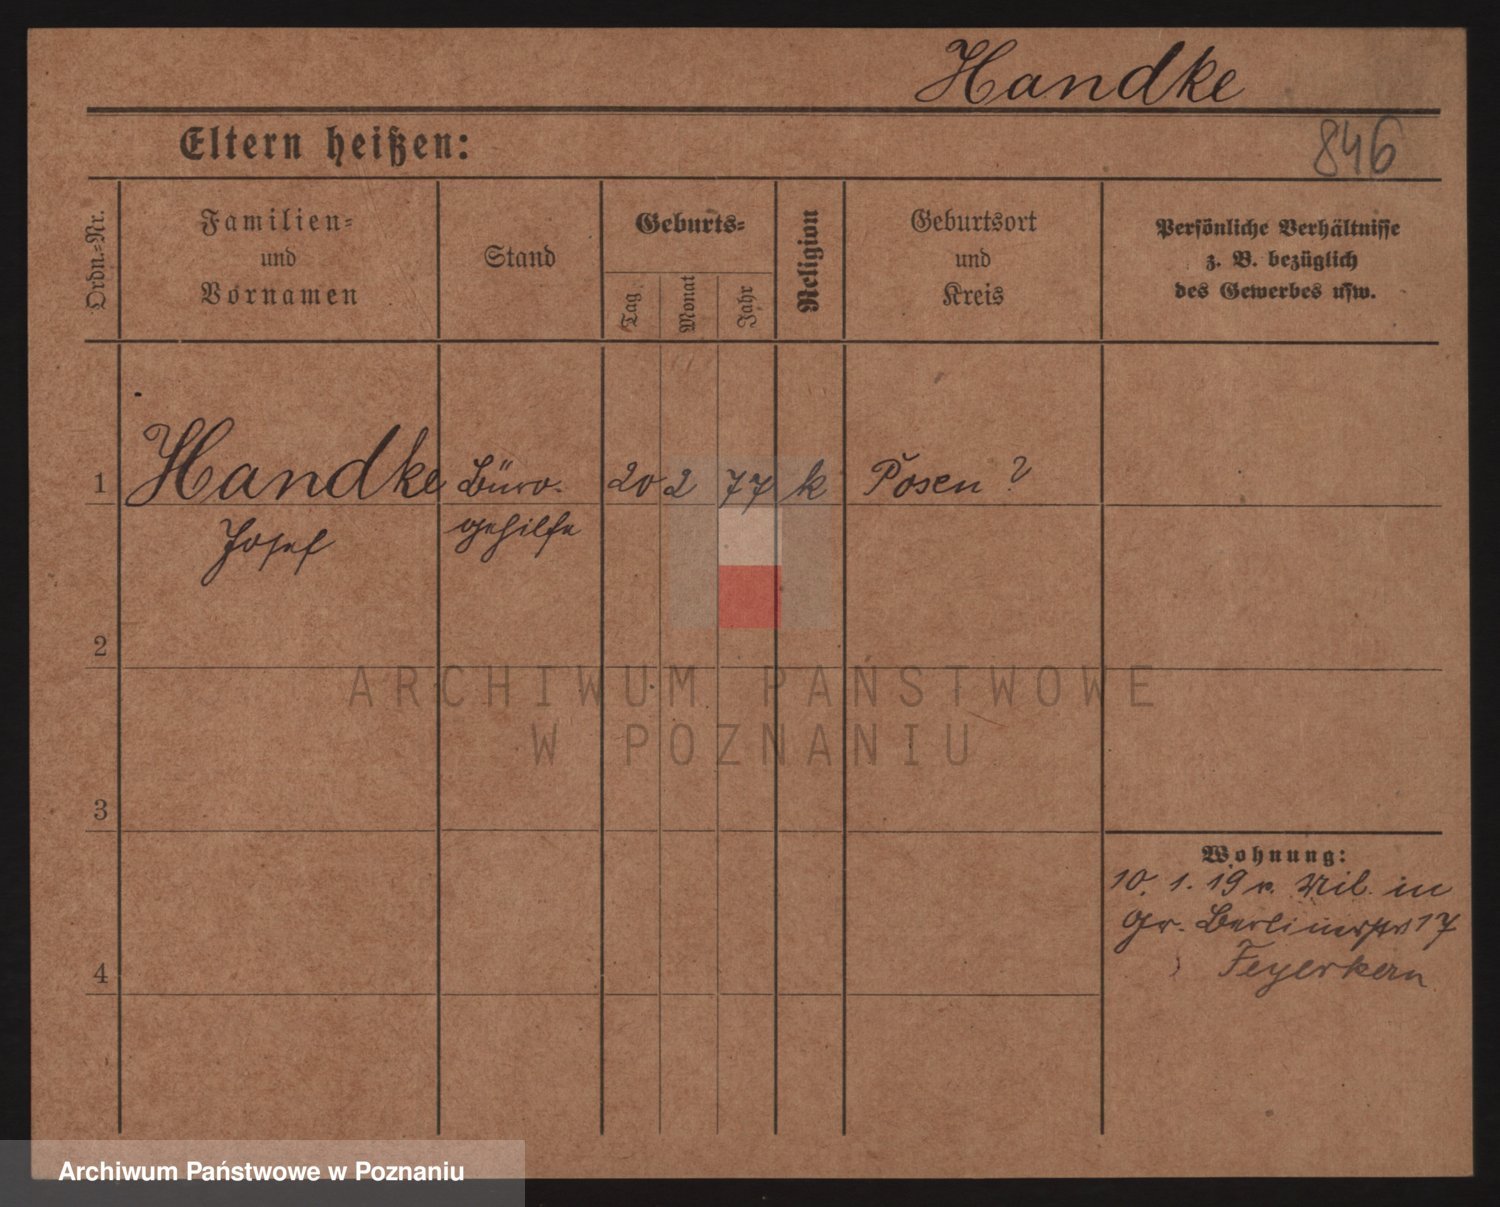 Handke
846
Eltern heißen:
Ordn.-Nr.
Familien-
und
Vornamen
Stand
Geburts-
Tag
Monat
Jahr
Religion
Geburtsort
und
Kreis
Persönliche Verhältnisse
z. B. bezüglich
des Gewerbes usw.
1 Handke Büro- 20 2 77 k Posen ?
Josef gehilfe
2
3
4
Wohnung:
10. 1. 19 v. Mil. in
Gr. Berlinerstr 17
Feyerkern
ARCHIWUM PAŃSTWOWE
W POZNANIU
Archiwum Państwowe w Poznaniu